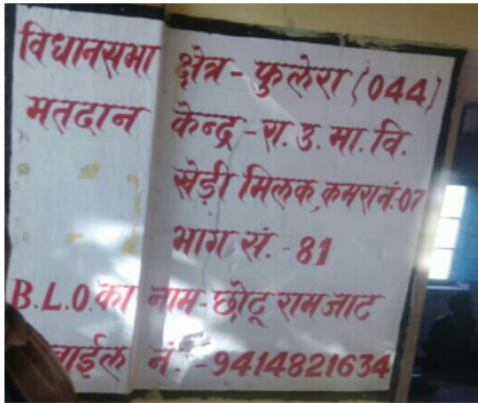 विधानसभा क्षेत्र - फुलेरा (044)
मतदान केन्द्र - रा. उ. मा. वि.
खेड़ी मिलक, कमरा नं.-07
भाग सं. - 81
B.L.O. का नाम - छोटू राम जाट
वाईल नं. - 9414821634